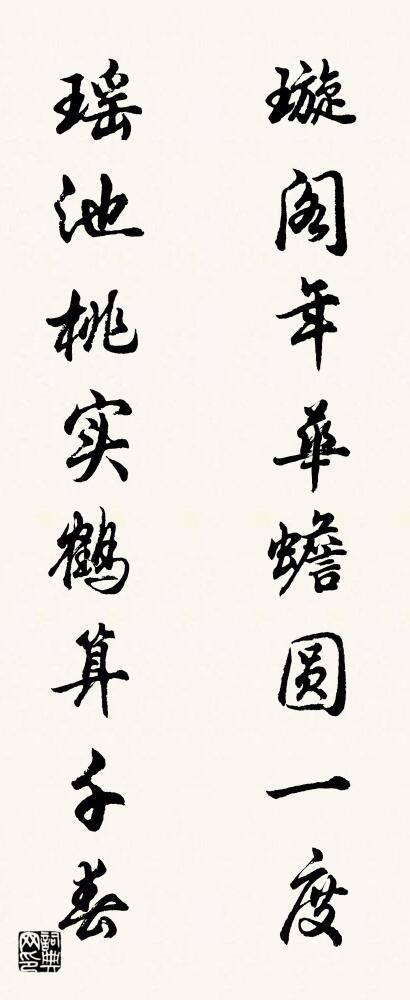 璇阁年华蟾圆一度
瑶池桃实鹤算千春
詞典网印